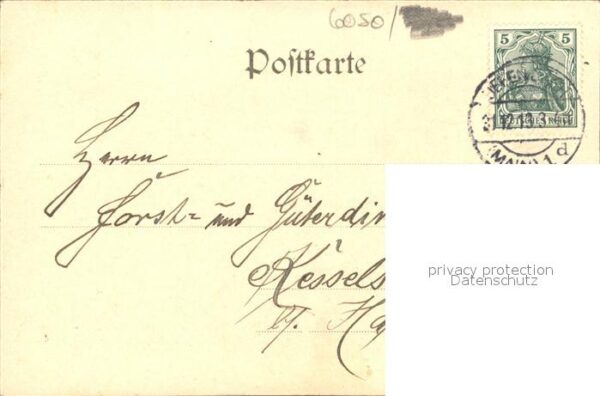 6050/
Postkarte
5 5
DEUTSCHES REICH
31.12.13.3
(MAIN) 1 d
Herrn
Forst- und Güterdin
Kessels
b/. Ha
privacy protection
Datenschutz